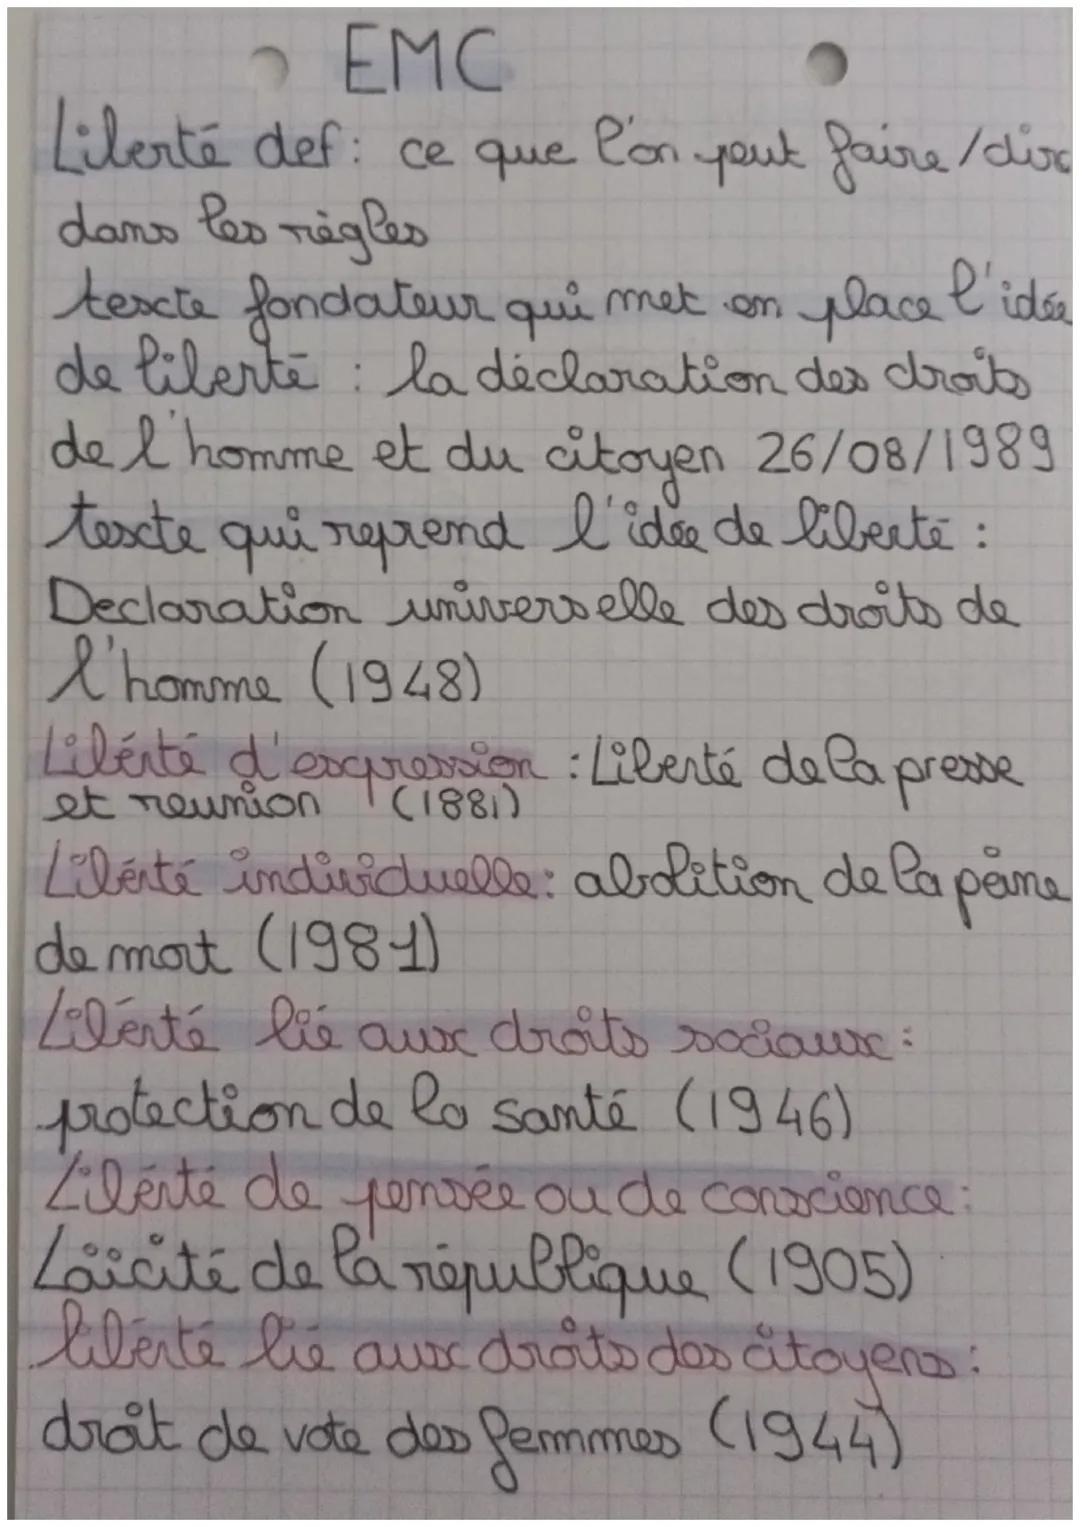 EMC
Liberté def : ce que l'on peut faire / dire
dans les règles
texte fondateur qui met en place l'idée
de liberté : la déclaration des droits
de l'homme et du citoyen 26/08/1989
texte qui reprend l'idée de liberté :
Declaration universelle des droits de
l'homme (1948)
Liberté d'expression : Liberté de la presse
et reunion (1881)
Liberté individuelle : abolition de la peine
de mort (1981)
Liberté lié aux droits sociaux :
protection de la santé (1946)
Liberté de pensée ou de conscience :
Laïcité de la république (1905)
liberté lié aux droits des citoyens :
droit de vote des femmes (1944)